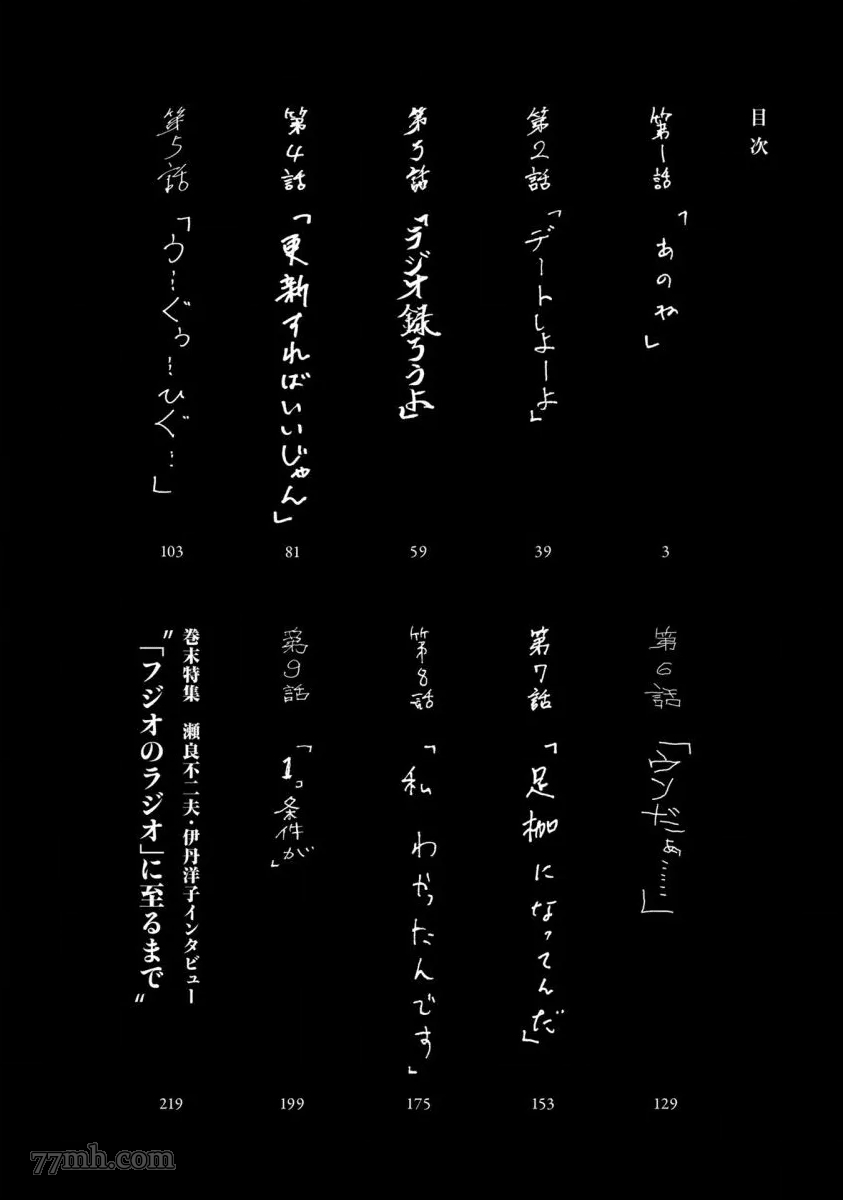 目次
第1話「あのね」
3
第2話「デートしよーよ」
39
第3話「ラジオ録ろうよ」
59
第4話「更新すればいいじゃん」
81
第5話「う…ぐぅ…ひぐ…」
103
第6話「ウソだぁ……」
129
第7話「足枷になってんだ」
153
第8話「私 わかったんです」
175
第9話「1コ条件が」
199
巻末特集 瀬良不二夫・伊丹洋子インタビュー
“「フジオのラジオ」に至るまで”
219
77mh.com